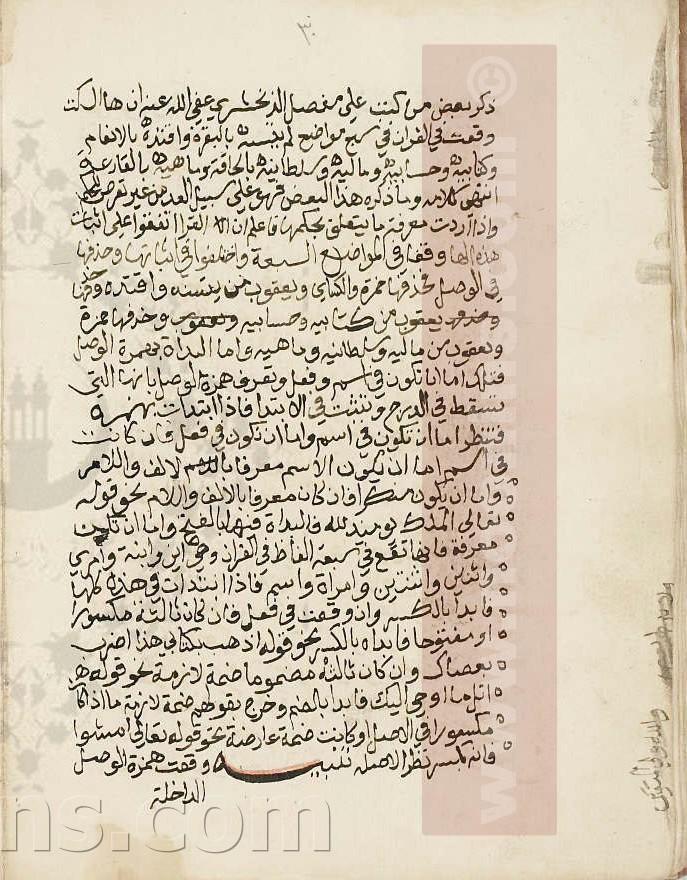 ٣٠
ذكر بعض من كتب علي مفصل الزمخشري عفي الله عنه ان هاء السكت
وقعت في القران في سبع مواضع لم يتسنه بالبقرة واقتده بالانعام
وكتابيه وحسابيه وماليه وسلطانيه بالحاقة وماهيه بالقارعة
انتهي كلامه وما ذكره هذا البعض فهو علي سبيل العد من غير تعرض للحكم
واذا اردت معرفة ما يتعلق بحكمها فاعلم ان القرا اتفقوا علي اثبات
هذه الها وقفا في المواضع السبعة واختلفوا في اثباتها وحذفها
في الوصل فحذفها حمزة والكساي ويعقوب من يتسنه واقتده
يعقوب من كتابيه وحسابيه وحذفها حمزة
ويعقوب من ماليه وسلطانيه وماهيه واما البداة بهمزة الوصل
فتلك اما ان تكون في اسم وفعل وتعرف همزة الوصل بانها التي
تسقط في الدرج وتثبت في الابتدا فاذا ابتدات بهمزة
فتنظر اما ان تكون في اسم واما ان تكون في فعل فان كانت
في اسم اما ان يكون الاسم معرفا بالالف واللام
واما ان يكون منكرا فان كان معرفا بالالف واللام نحو قوله
تعالي الملك يومئذ لله فالبداة فيها بالفتح واما ان تكون
معرفة فانها تقع في سبعة الفاظ في القران وهي ابن وابنة وامري
واثنين واثنتين وامراة واسم فاذا ابتدات في هذه كلها
فابدا بالكسر وان وقعت في فعل فان كان ثالثه مكسورا
او مفتوحا فابداه بالكسر نحو قوله اذهب بكتابي هذا اضرب
بعصاك وان كان ثالثه مضموما ضمة لازمة نحو قوله
اتل ما اوحي اليك فابدا بالضم وخرج بقولهم ضمة لازمة ما اذا كان
مكسورا في الاصل او كانت ضمة عارضة نحو قوله تعالي امشوا
فانه يكسر نظرا لاصله تنبيه وقعت همزة الوصل
الداخلة
ns.com